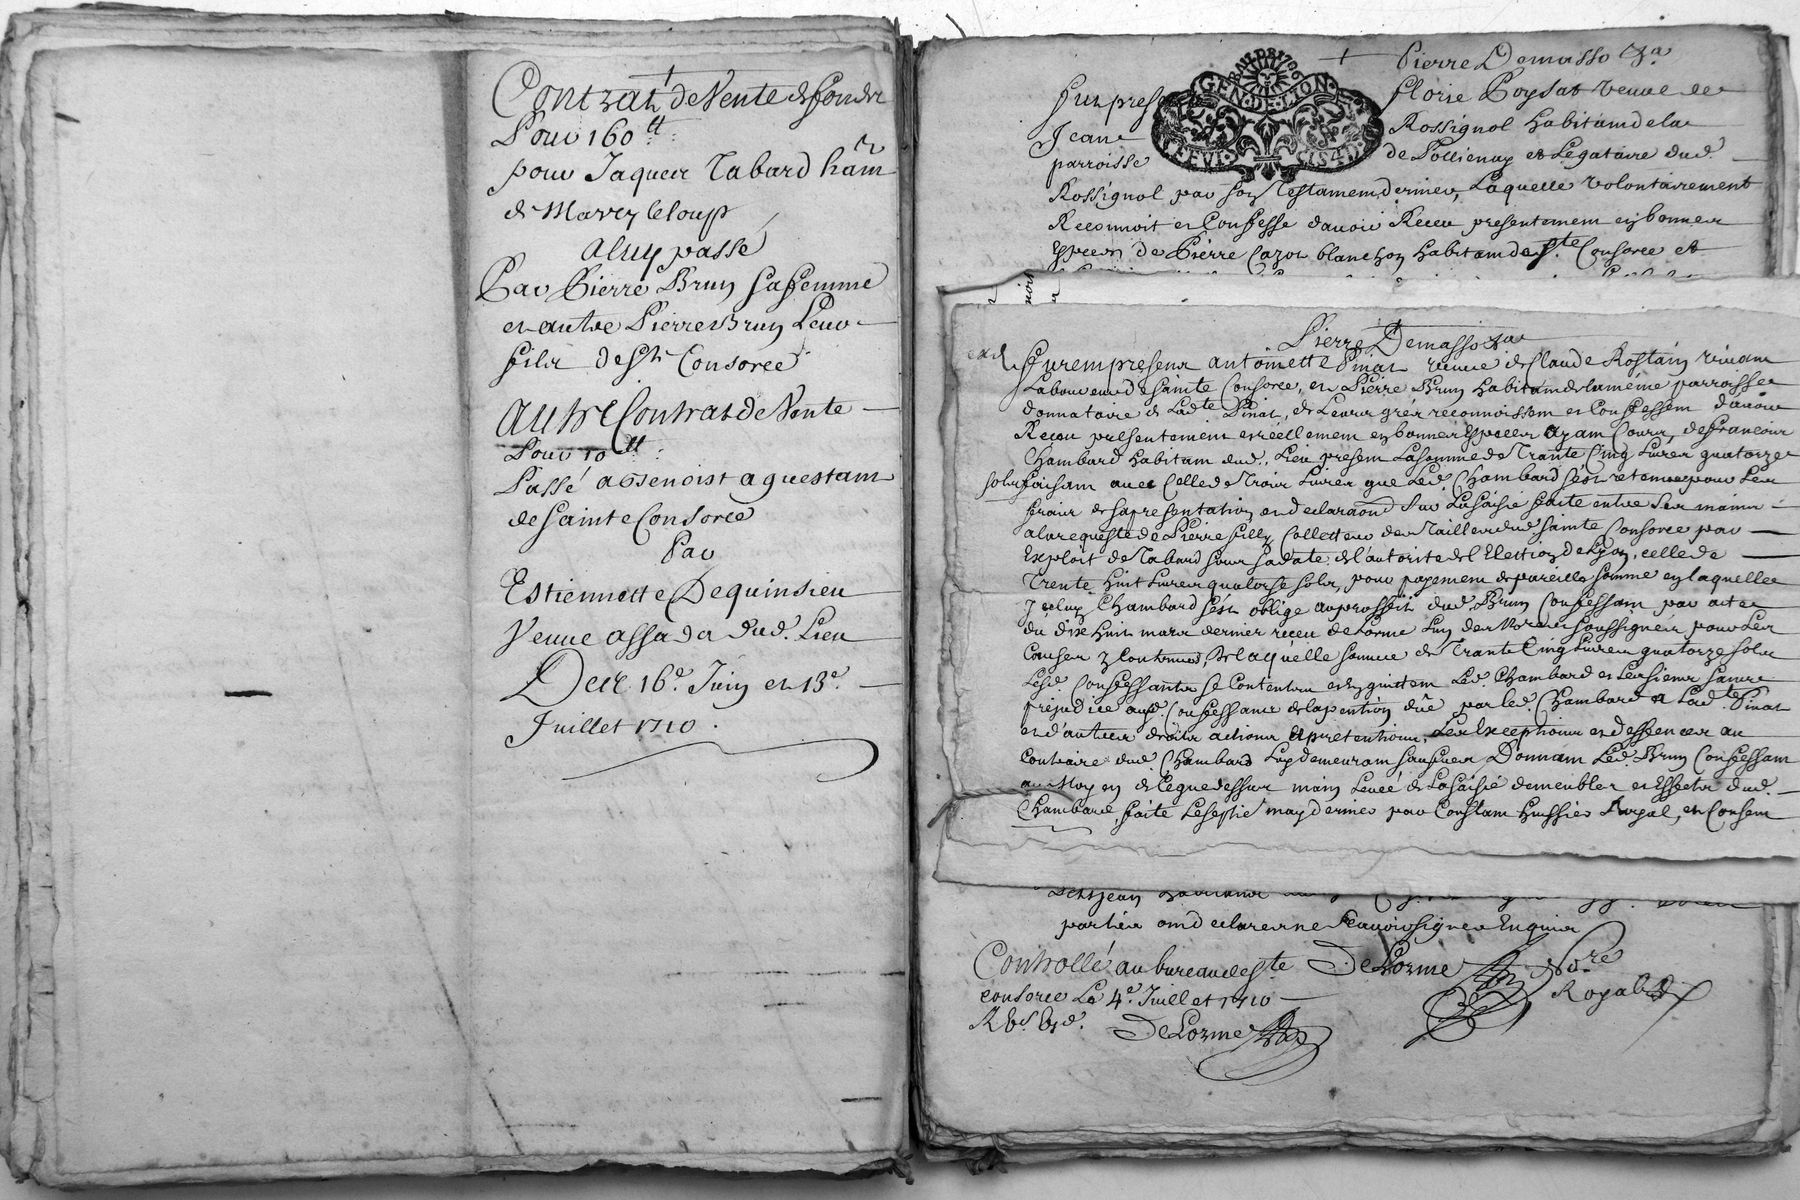 Contrat de Vente de fondz
Pour 160 tt
pour Jaques Tabard hãn
de Marcy le loup
a luy passé
Par Pierre Brun sa femme
et autre Pierre Brun Leur
filz de Ste Consorce
Autre Contrat de Vente
Pour 10 tt
Passé a Benoist aguestam
de Sainte Consorce
Par
Estiennette Dequinsieu
Veuve assada dud. Lieu
Des 16e. Juin et 13e.
Juillet 1710.
Pierre Demasso &a
GEN. DE LION
Fut presente florie Poysat veuve de
Jean Rossignol habitant de la
parroisse de Pollienay et Legataire dud.
Rossignol par son Testament dernier, Laquelle volontairement
Reconnoit et Confesse d'avoir Receu presentement en bonnes
Especes de Pierre Cazot blanchon habitant de Ste. Consorce et
Pierre Demasso &a
Furent présens antoinette Pinat veuve de Claude Rostain vivant
Laboureur de Sainte Consorce, et Pierre Brun habitant de la même parroisse
donnataire de Ladte Pinat, de Leurs gréz reconnoissent et Confessent d'avoir
Receu présentement et réellement en bonnes Especes ayant Cours, de françois
Chambard habitant dud. Lieu présent La somme de Trante Cinq Livres quatorze
solz faisant avec Celle de Trois Livres que Led. Chambard s'est retenue pour Les
fraix de sa présentation et declaraõn Sur La saisie faite entre Ses mains
a la requeste de Pierre filly Collecteur des Tailles dud. Sainte Consorce par
Exploit de Tabard sous sa date de l'autorité de l'Election de Lyon, celle de
Trente huit Livres quatorse solz, pour payement de pareille somme en laquelle
Iceluy Chambard s'est obligé au proffit dud. Brun Confessant par acte
du dix huit mars dernier receu de Lorme L'un des Nores soussignéz pour Les
Causes y Contenues, De laquelle somme de Trante Cinq Livres quatorze solz
Lesd. Confessants se Contentent et en quittent Led. Chambard et Les siens sans
préjudice ausd. Confessans de la pention düe par led. Chambard a Ladte Pinat
et d'autres droits actions et prétentions, Les Exceptions et deffences au
Contraire dud. Chambard Luy demeurant sauves, Donnant Led. Brun Confessant
au Moyen de Ce que dessus main Levée de La saisie de meubles et Effects dud.
Chambard, faite Le septie may dernier par Constant huissier Royal, et Consent
parties ont declaré ne sçavoir signer Enquis
Controllé au bureau de Ste
Consorce Le 4e. Juillet 1710
DeLorme
DeLorme Nore
Royal